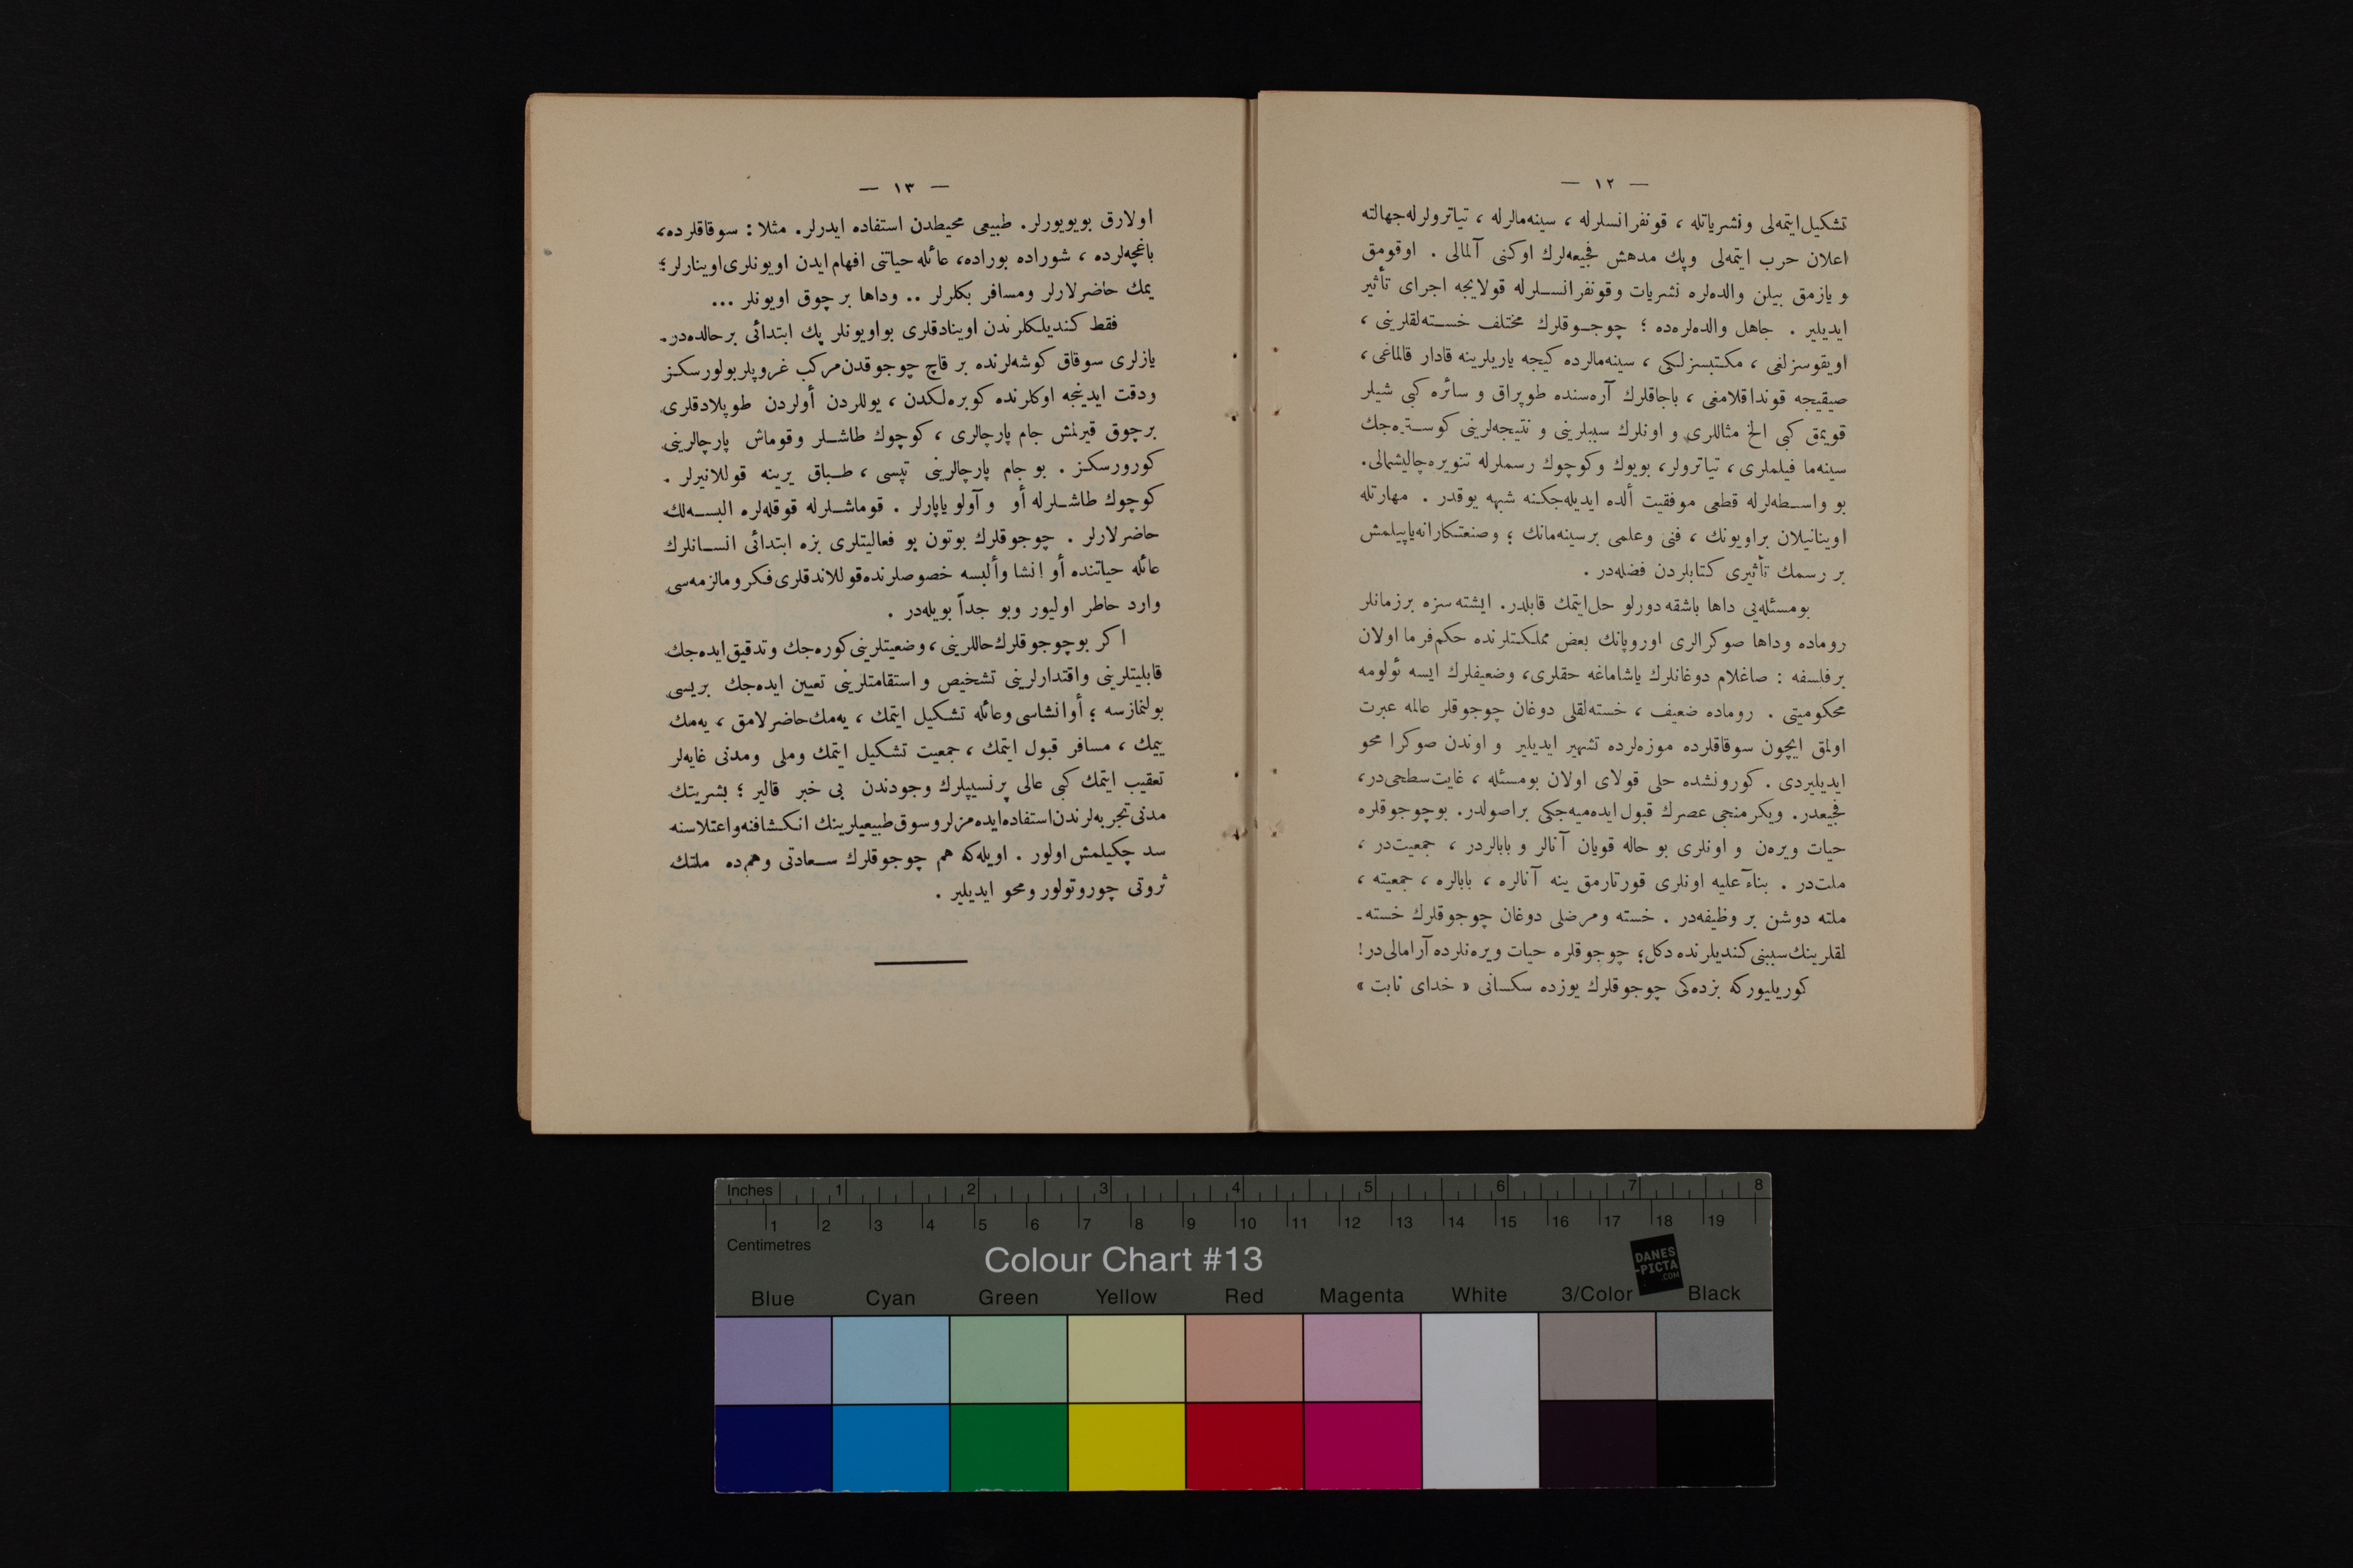 — ١٢ —
تشكيل ايتمه‌لى ونشرياتله ، قونفرانسلرله ، سينه‌مالرله ، تياترولرله جهالته
اعلان حرب ايتمه‌لى وپك مدهش فجيعه‌لرك اوكنى آلمالى . اوقومق
و يازمق بيلن والده‌لره نشريات وقونفرانسلرله قولايجه اجراى تأثير
ايديلير . جاهل والده‌لره‌ده ؛ چوجوقلرك مختلف خسته‌لقلرينى ،
اويقوسزلغى ، مكتبسزلكى ، سينه‌مالرده كيجه ياريلرينه قادار قالماغى ،
صيقيجه قونداقلامغى ، باجاقلرك آره‌سنده طوپراق و سائره كبى شيلر
قويمق كبى الخ مثاللرى و اونلرك سببلرينى و نتيجه‌لرينى كوستره‌جك
سينه‌ما فيلملرى ، تياترولر، بويوك وكوچوك رسملرله تنويره چاليشمالى.
بو واسطه‌لرله قطعى موفقيت ألده ايديله‌جكنه شبهه يوقدر . مهارتله
اوينانيلان براويونك ، فنى وعلمى برسينه‌مانك ؛ وصنعتكارانه ياپيلمش
بر رسمك تأثيرى كتابلردن فضله‌در .
بومسئله‌يى داها باشقه دورلو حل ايتمك قابلدر. ايشته سزه برزمانلر
روماده وداها صوكرالرى اوروپانك بعض مملكتلرنده حكم‌فرما اولان
برفلسفه : صاغلام دوغانلرك ياشاماغه حقلرى، وضعيفلرك ايسه ئولومه
محكوميتى . روماده ضعيف ، خسته‌لقلى دوغان چوجوقلر عالمه عبرت
اولمق ايچون سوقاقلرده موزه‌لرده تشهير ايديلير و اوندن صوكرا محو
ايديليردى . كورونشده حلى قولاى اولان بومسئله ، غايت سطحى‌در،
فجيعدر. ويكرمنجى عصرك قبول ايده‌ميه‌جكى براصولدر. بوچوجوقلره
حيات ويره‌ن و اونلرى بو حاله قويان آنالر و بابالردر ، جمعيت‌در ،
ملت‌در . بناءً عليه اونلرى قورتارمق ينه آنالره ، بابالره ، جمعيته ،
ملته دوشن بر وظيفه‌در . خسته ومرضلى دوغان چوجوقلرك خسته‌ـ
لقلرينك سببنى كنديلرنده دكل؛ چوجوقلره حيات ويره‌نلرده آرامالى‌در!
كوريليوركه بزده‌كى چوجوقلرك يوزده سكسانى « خداى نابت »
— ١٣ —
اولارق بويويورلر. طبيعى محيطدن استفاده ايدرلر. مثلا : سوقاقلرده،
باغچه‌لرده ، شوراده بوراده، عائله حياتنى افهام ايدن اويونلرى اوينارلر؛
يمك حاضرلارلر ومسافر بكلرلر .. وداها برچوق اويونلر ...
فقط كنديلكلرندن اوينادقلرى بواويونلر پك ابتدائى برحالده‌در.
يازلرى سوقاق كوشه‌لرنده بر قاچ چوجوقدن مركب غروپلر بولورسكز
ودقت ايدينجه اوكلرنده كوبره‌لكدن ، يوللردن أولردن طوپلادقلرى
برچوق قيرلمش جام پارچالرى ، كوچوك طاشلر وقوماش پارچالرينى
كورورسكز . بو جام پارچالرينى تپسى ، طباق يرينه قوللانيرلر .
كوچوك طاشلرله أو و آولو ياپارلر . قوماشلرله قوقله‌لره البسه‌لك
حاضرلارلر . چوجوقلرك بوتون بو فعاليتلرى بزه ابتدائى انسانلرك
عائله حياتنده أو انشا وألبسه خصوصلرنده قوللاندقلرى فكر ومالزمه‌سى
وارد خاطر اوليور وبو جداً بويله‌در .
اكر بوچوجوقلرك حاللرينى ، وضعيتلرينى كوره‌جك وتدقيق ايده‌جك
قابليتلرينى واقتدارلرينى تشخيص و استقامتلرينى تعيين ايده‌جك بريسى
بولنمازسه ؛ أوانشاسى وعائله تشكيل ايتمك ، يه‌مك حاضرلامق ، يه‌مك
ييمك ، مسافر قبول ايتمك ، جمعيت تشكيل ايتمك وملى ومدنى غايه‌لر
تعقيب ايتمك كبى عالى پرنسيپلرك وجودندن بى خبر قالير ؛ بشريتك
مدنى تجربه‌لرندن استفاده ايده‌مزلر وسوق طبيعيلرينك انكشافنه واعتلاسنه
سد چكيلمش اولور . اويله‌كه هم چوجوقلرك سعادتى وهم‌ده ملتك
ثروتى چوروتولور ومحو ايديلير .
Inches 1 2 3 4 5 6 7 8
1 2 3 4 5 6 7 8 9 10 11 12 13 14 15 16 17 18 19
Centimetres
Colour Chart #13
DANES
-PICTA
.COM
Blue Cyan Green Yellow Red Magenta White 3/Color Black